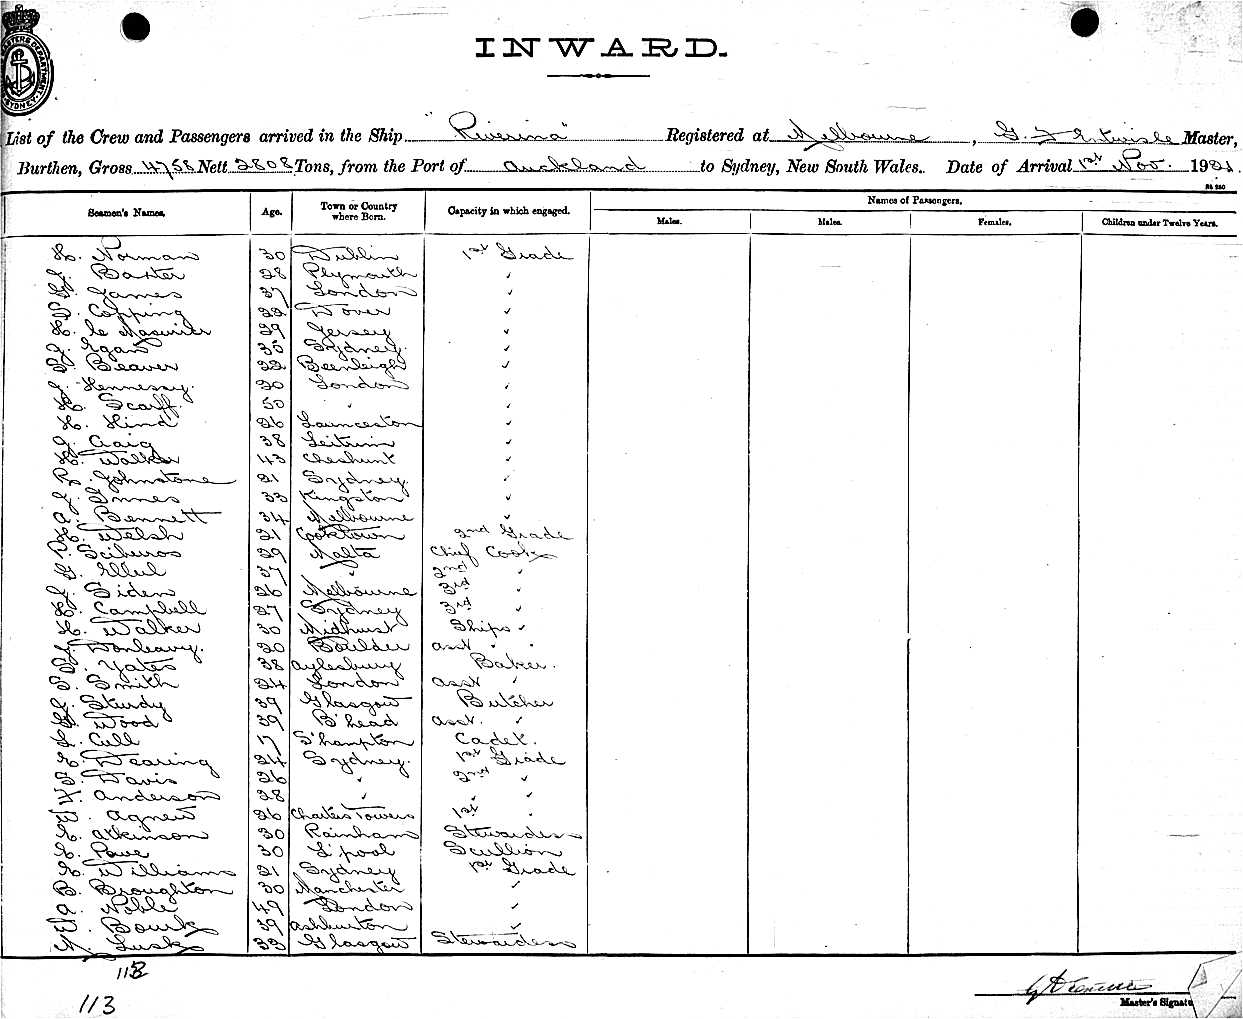 INWARD.
List of the Crew and Passengers arrived in the Ship "Riverina" Registered at Melbourne, G. Entwisle Master,
Burthen, Gross 4758 Nett 2808 Tons, from the Port of Auckland to Sydney, New South Wales. Date of Arrival 1st Nov. 1921.
Names of Passengers.
Seamen's Names. Age. Town or Country where Born. Capacity in which engaged. Males. Males. Females. Children under Twelve Years.
H. Norman 30 Dublin 1st Grade
J. Baxter 28 Plymouth "
James 37 London "
Copping 22 Dover "
H. le Masurier 29 Jersey "
J. Egan 35 Sydney "
Beaver 22 Beenleigh "
J. Hennessy. 20 London "
H. Scarff. 50 " "
H. Hind 26 Launceston "
J. Craig 38 Leitrim "
H. Walker 43 Cheshunt "
R. Johnstone 21 Sydney "
J. Innes 33 Kingston "
A. Bennett 34 Melbourne "
H. Welsh 21 Cooktown 2nd Grade
Sciberros 29 Malta Chief Cook
G. Ellul 37 " 2nd "
J. Siden 26 Melbourne 3rd "
H. Campbell 27 Sydney 3rd "
H. Walker 30 Midhurst Ships "
J. Donleavy. 20 Boulder asst " "
Yates 38 Aylesbury Baker.
S. Smith 24 London asst "
J. Sturdy 39 Glasgow Butcher
Wood 39 B'head asst. "
L. Cull 17 S'hampton Cadet.
E. Dearing 24 Sydney. 1st Grade
Davis 26 " 2nd "
Anderson 28 " " "
W. Agnew 26 Charters Towers 1st "
E. Atkinson 30 Rainham Stewardess
E. Rowe 30 L'pool Scullion
E. Williams 21 Sydney 1st Grade
B. Broughton 30 Manchester "
A. Noble 49 London "
W. Bourk 39 Ashburton "
Lusk 33 Glasgow Stewardess
113
Master's Signature